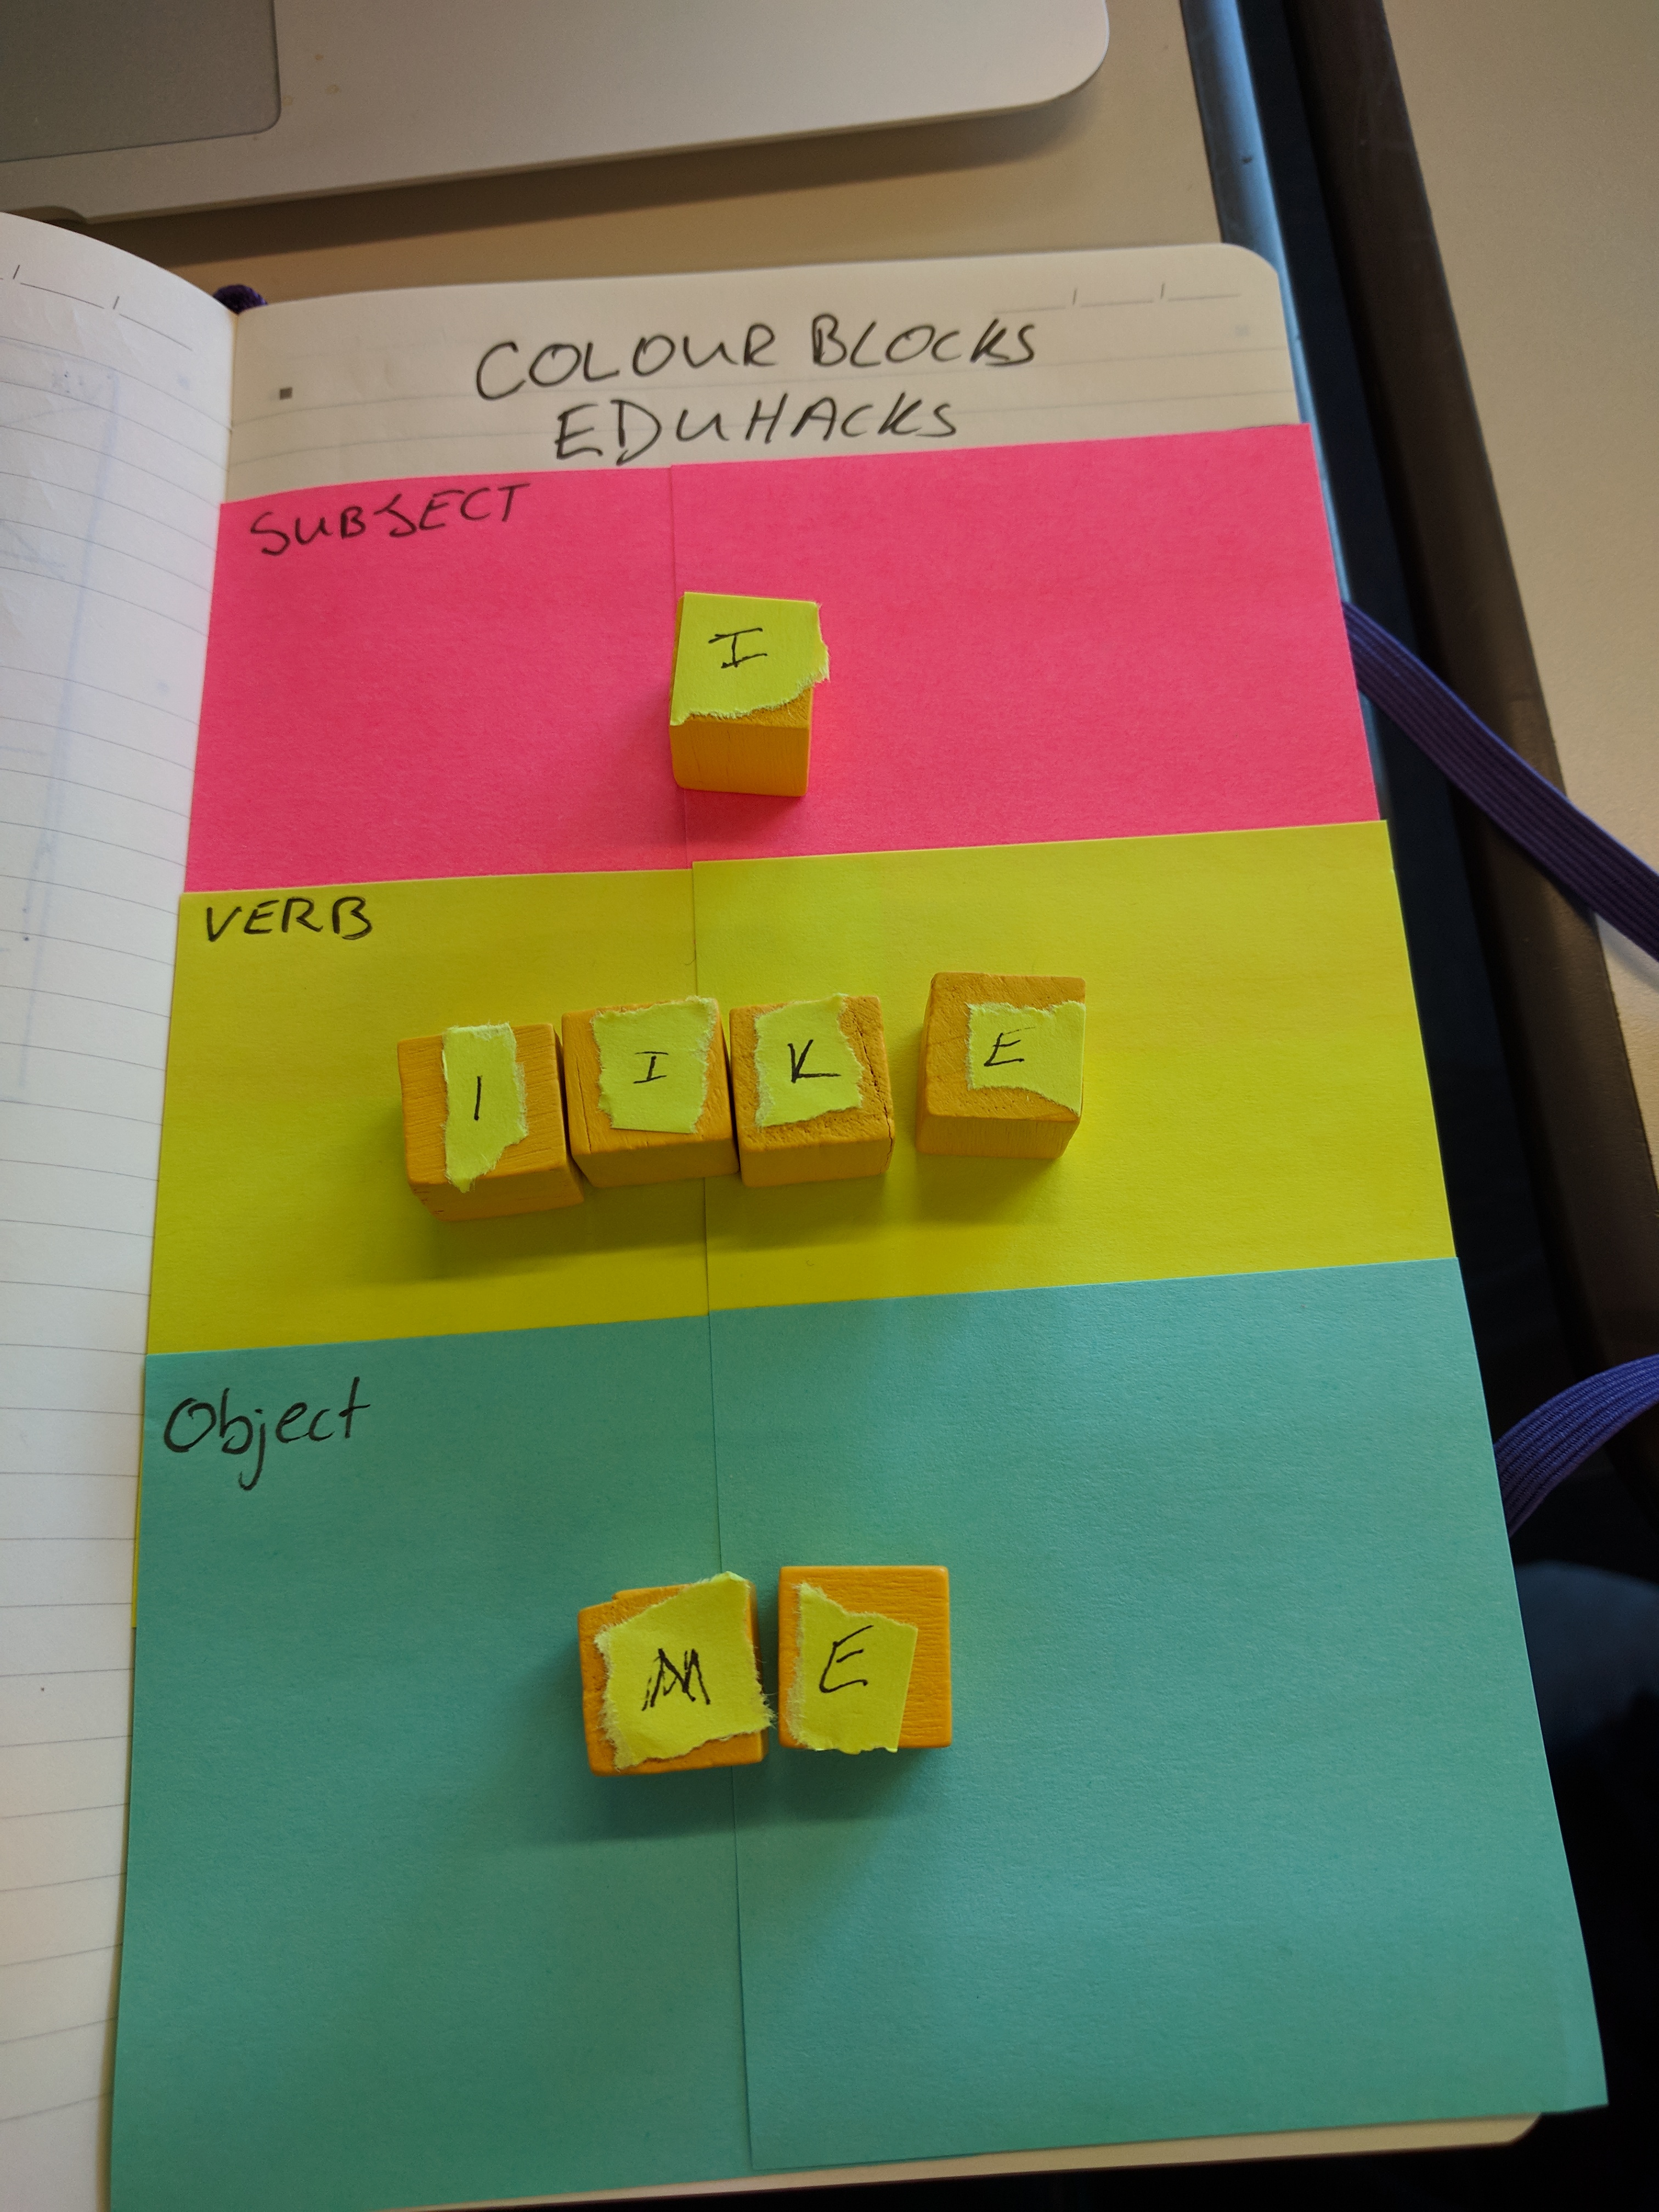 COLOUR BLOCKS
EDUHACKS
SUBJECT
I
VERB
l I K E
Object
M E